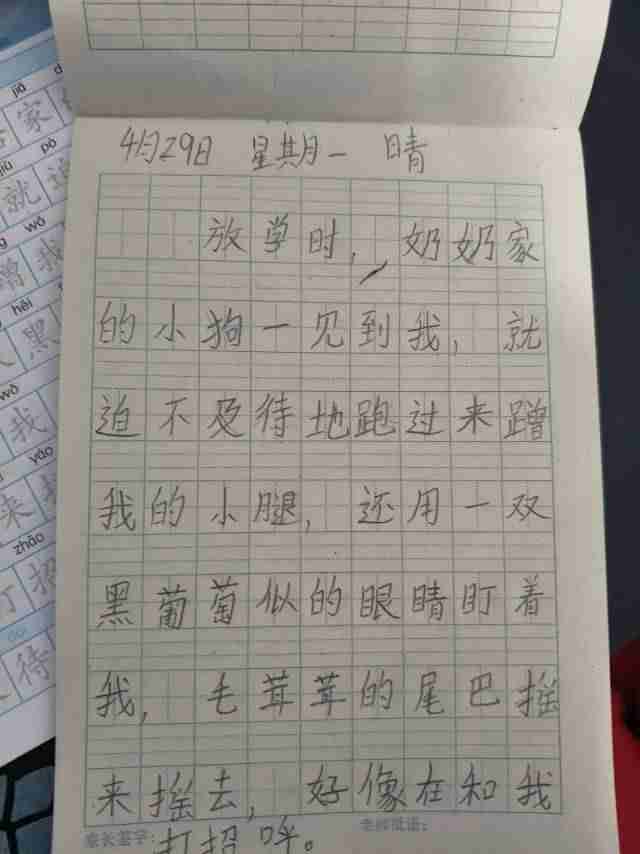 4月29日 星期一 晴
放学时,奶奶家
的小狗一见到我,就
迫不及待地跑过来蹭
我的小腿,还用一双
黑葡萄似的眼睛盯着
我,毛茸茸的尾巴摇
来摇去,好像在和我
打招呼。
家长签字:
老师批语:
jiā
家
pò
就迫
wǒ
蹭我
hēi
黑
wǒ
我
yáo
来摇
zhāo
打招
待